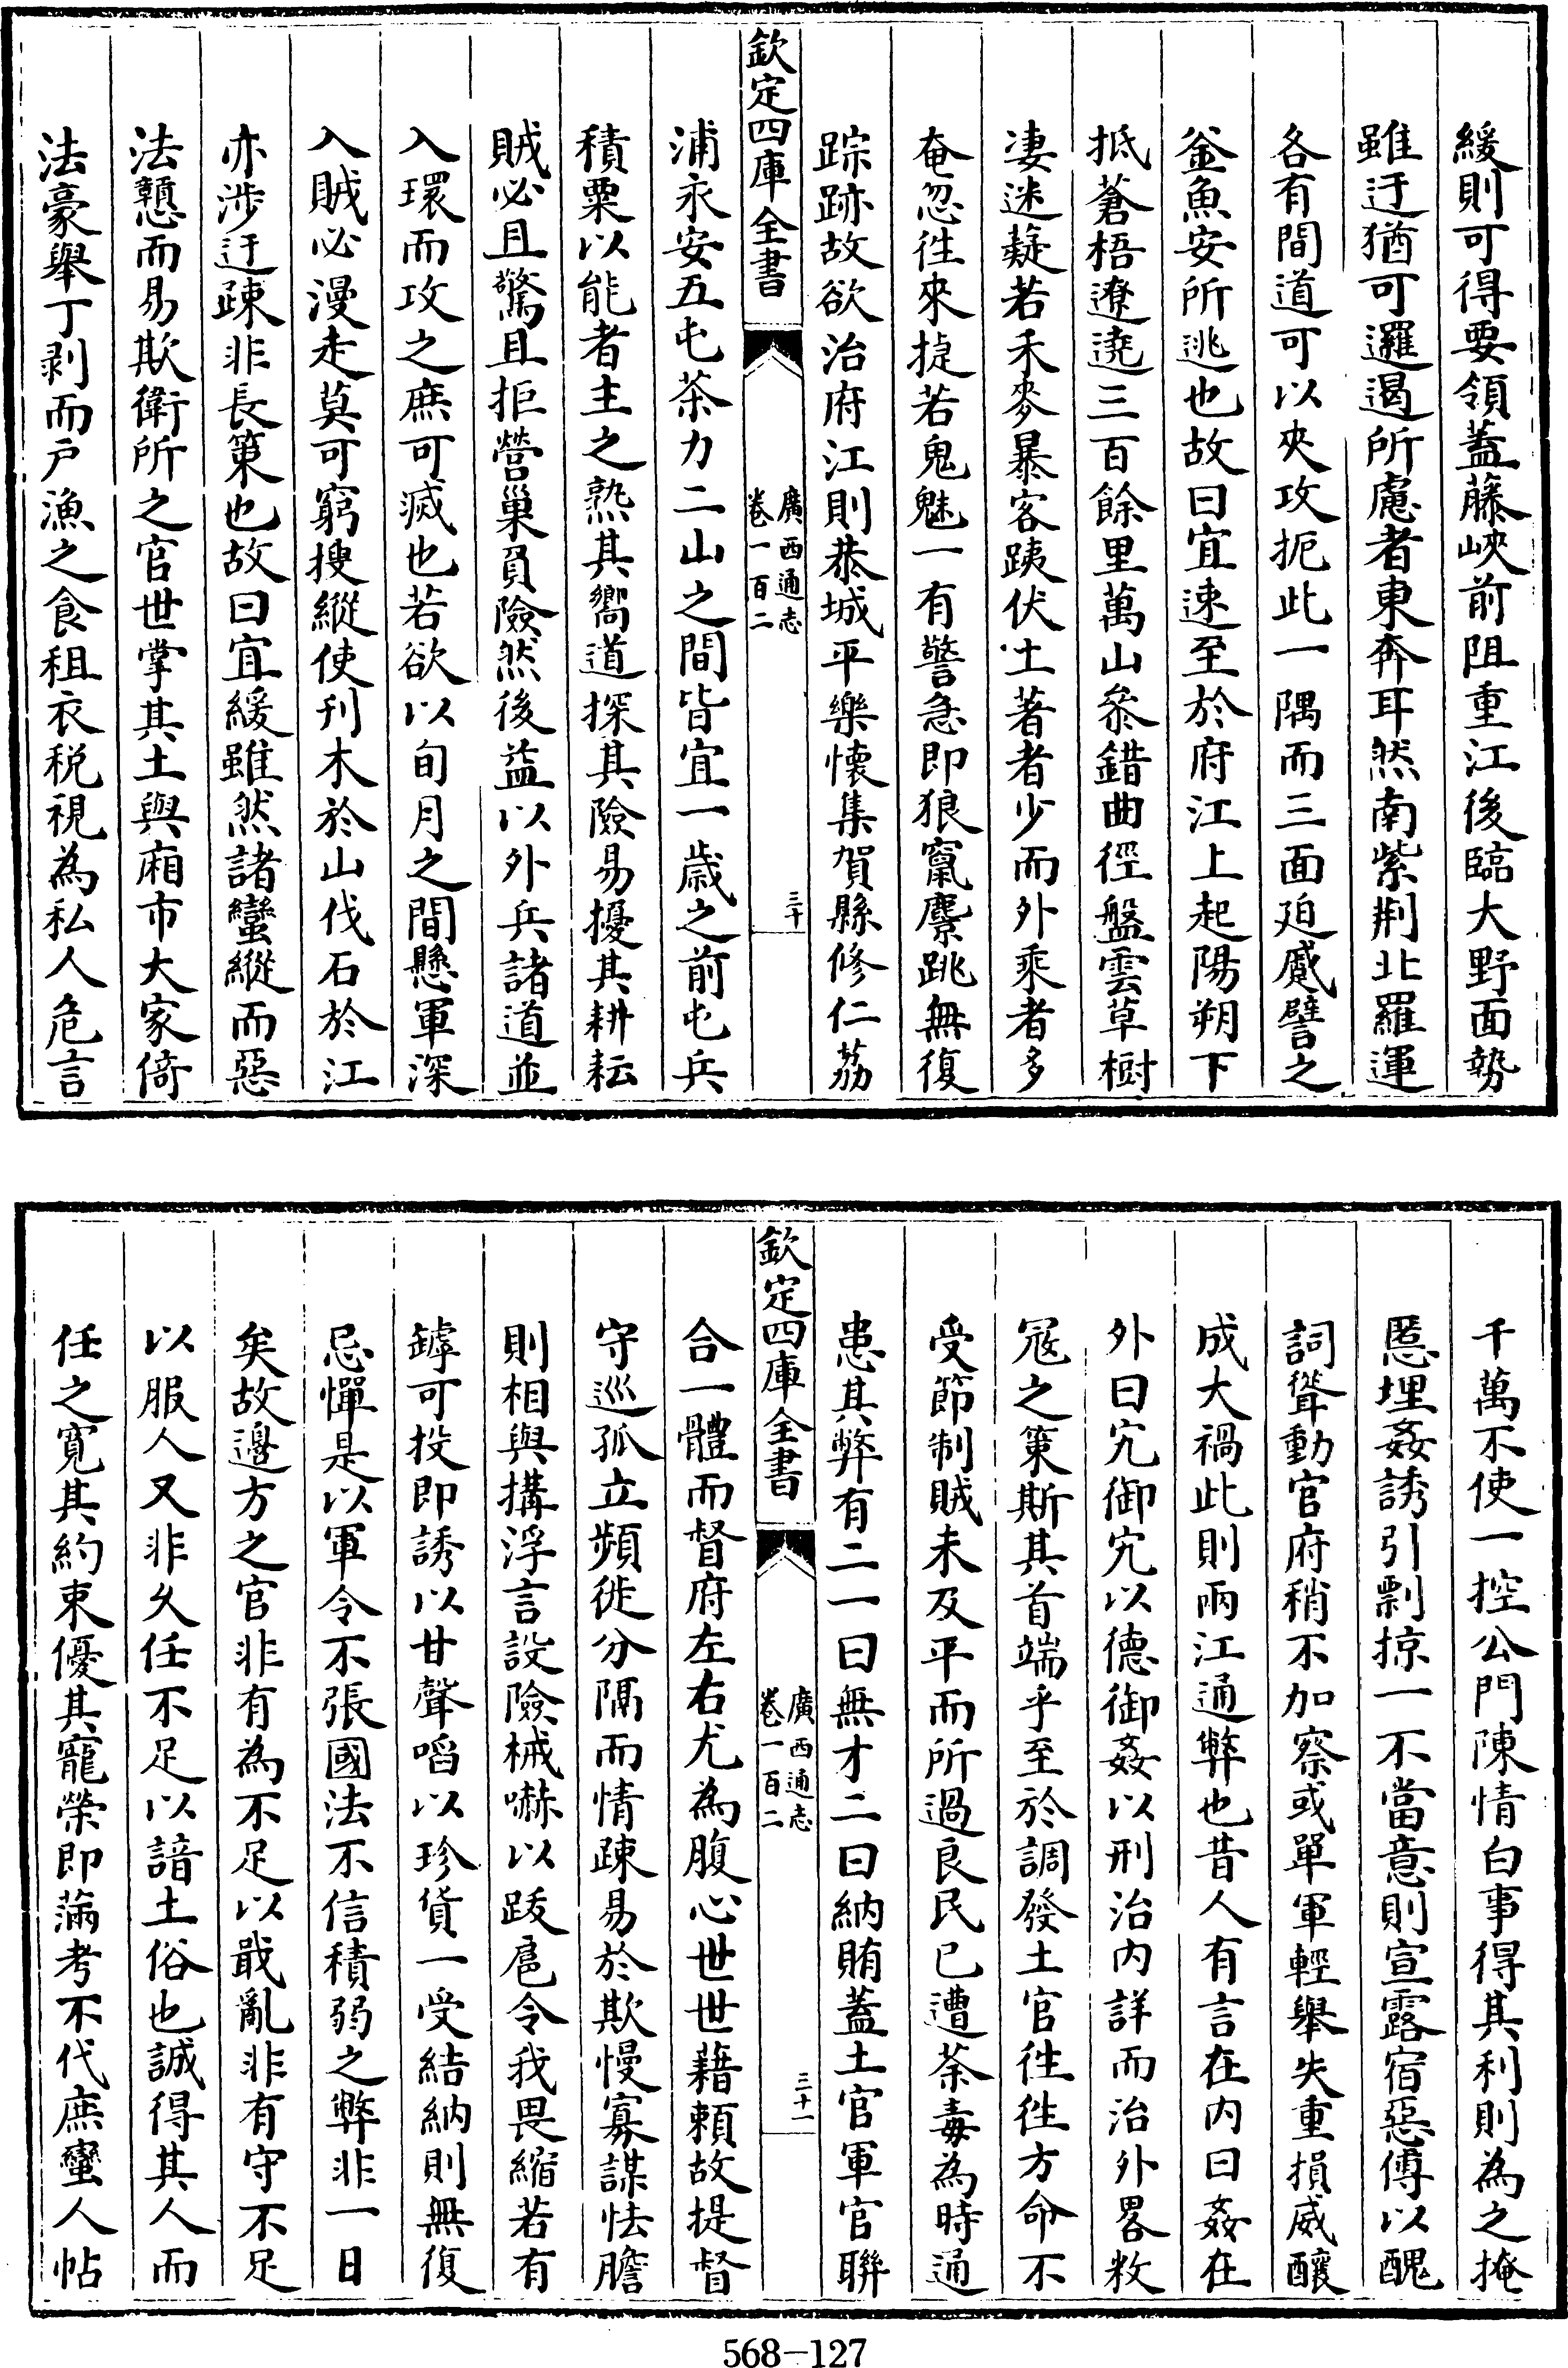 緩則可得要領蓋藤峽前阻重江後臨大野面勢
雖迂猶可邏遏所慮者東奔耳然南紫荆北羅運
各有間道可以夾攻扼此一隅而三面廹蹙譬之
釡魚安所逃也故曰宜速至於府江上起陽朔下
抵蒼梧遼遶三百餘里萬山叅錯曲徑盤雲草樹
凄迷薿若禾麥暴客踐伏土著者少而外乘者多
奄忽徃來捷若鬼魅一有警急即狼竄麖跳無復
踪跡故欲治府江則恭城平樂懷集賀縣修仁荔
欽定四庫全書
廣西通志
卷一百二
三十
浦永安五屯茶力二山之間皆宜一歲之前屯兵
積粟以能者主之熟其嚮道探其險易擾其耕耘
賊必且驚且拒營巢負險然後益以外兵諸道並
入環而攻之庶可滅也若欲以旬月之間懸軍深
入賊必漫走莫可窮搜縱使刋木於山伐石於江
亦涉迂疎非長策也故曰宜緩雖然諸蠻縱而惡
法戇而易欺衛所之官世掌其土與廂市大家倚
法豪舉丁剥而戶漁之食租衣税視為私人危言
千萬不使一控公門陳情白事得其利則為之掩
慝埋姦誘引剽掠一不當意則宣露宿惡傅以醜
詞聳動官府稍不加察或單軍輕舉失重損威釀
成大禍此則兩江通弊也昔人有言在内曰姦在
外曰宄御宄以德御姦以刑治内詳而治外畧敉
冦之策斯其首端乎至於調發土官徃徃方命不
受節制賊未及平而所過良民已遭荼毒為時通
患其弊有二一曰無才二曰納賄蓋土官軍官聯
欽定四庫全書
廣西通志
卷一百二
三十一
合一體而督府左右尤為腹心世世藉賴故提督
守巡孤立頻徙分隔而情疎易於欺慢寡謀怯膽
則相與搆浮言設險械嚇以跋扈令我畏縮若有
罅可投即誘以甘聲啗以珍貨一受結納則無復
忌憚是以軍令不張國法不信積弱之弊非一日
矣故邊方之官非有為不足以戡亂非有守不足
以服人又非久任不足以諳土俗也誠得其人而
任之寛其約束優其寵榮即滿考不代庶蠻人帖
568—127